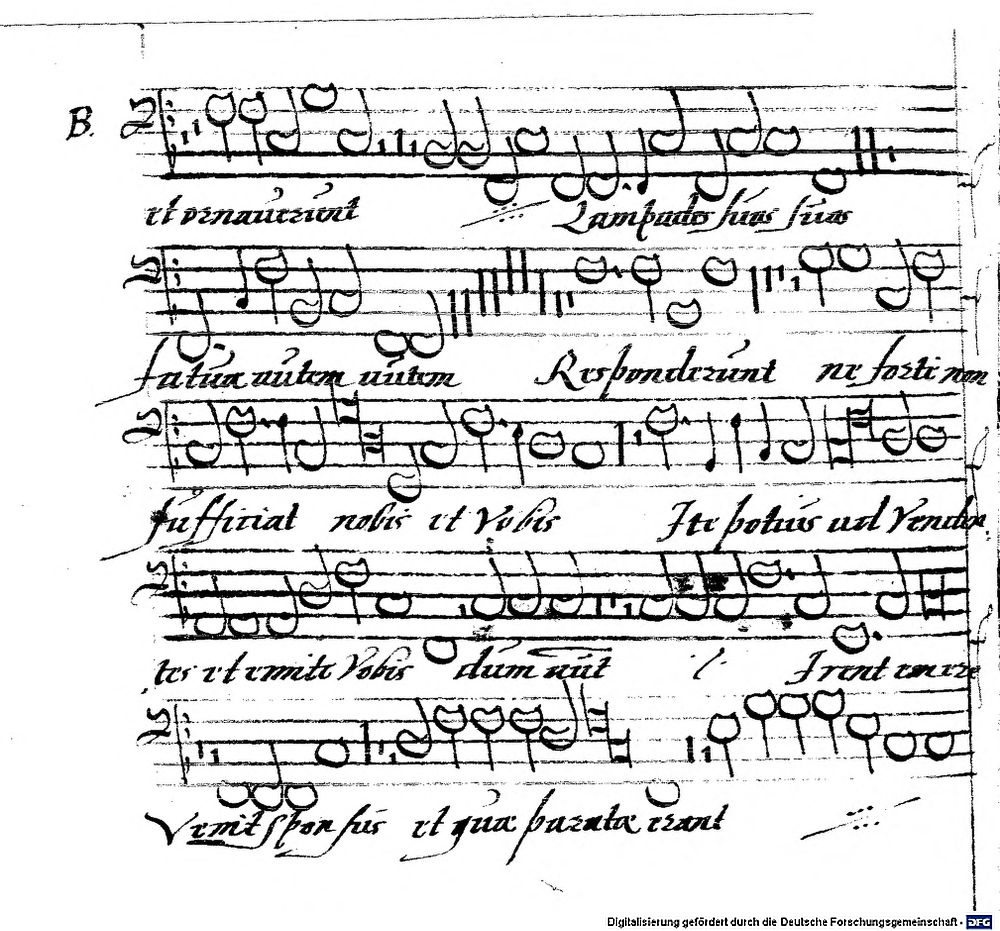 B.
et ornauerunt Lampades suas suas
fatuæ autem autem Responderunt ne forte non
sufficiat nobis et vobis Ite potius ad venden
tes et emite vobis dum aut Irent emere
Venit sponsus et quæ paratæ erant
Digitalisierung gefördert durch die Deutsche Forschungsgemeinschaft - DFG